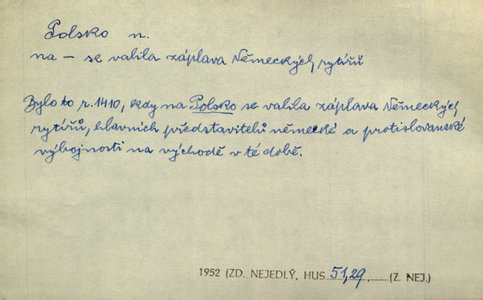 Polsko n.
na – se valila záplava Německých rytířů
Bylo to r. 1410, kdy na Polsko se valila záplava Německých
rytířů, hlavních představitelů německé a protislovanské
výbojnosti na východě v té době.
1952 (ZD. NEJEDLÝ, HUS 51,29 (Z. NEJ.)